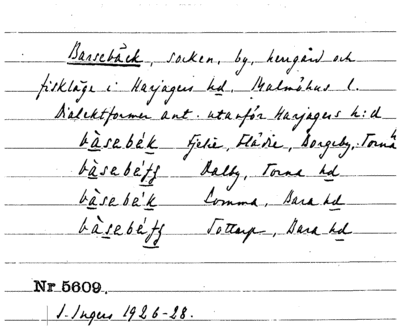 Barsebäck, socken, by, herrgård och
fiskläge i Harjagers hd, Malmöhus l.
Dialektformer ant. utanför Harjagers h:d
bàsebék Fjelie, Flädie, Borgeby, Torna h
bàsebéfg Dalby, Torna hd
bàsebék Lomma, Bara hd
bàsebéfg Tottarp, Bara hd
Nr 5609.
I. Ingers 1926-28.